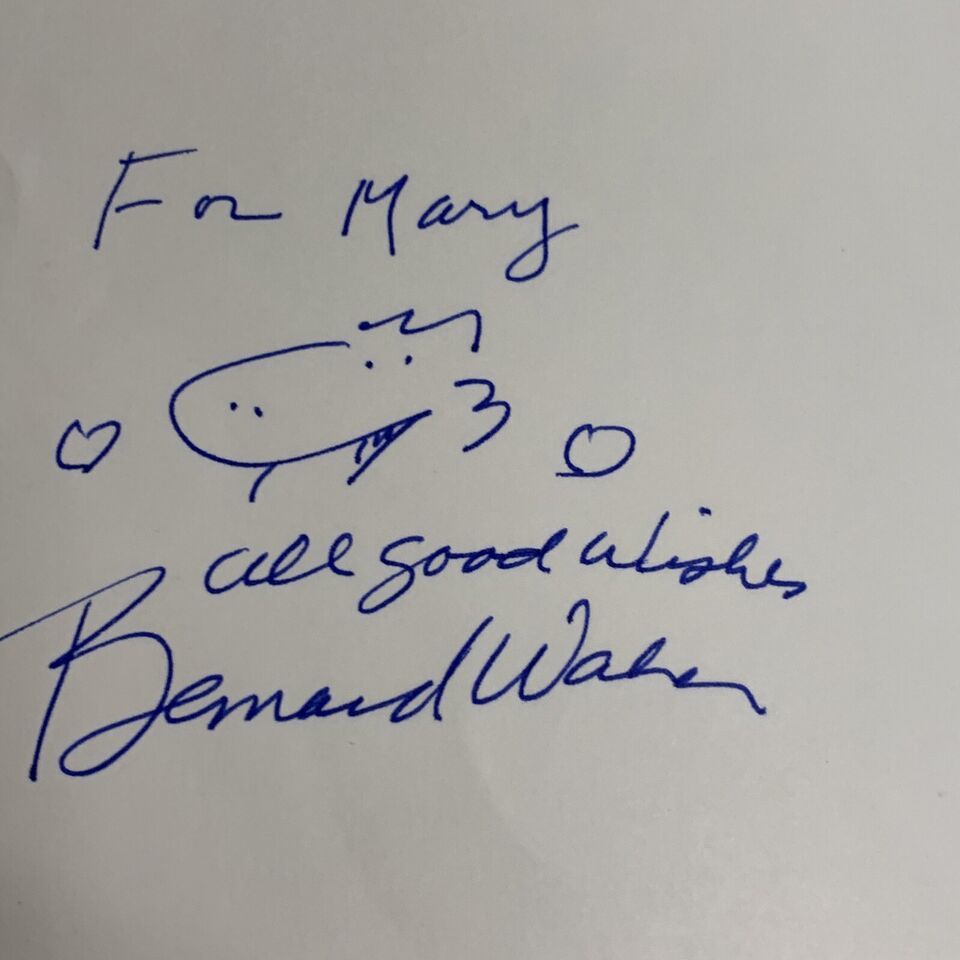 For Mary
all good wishes
Bernard Waber